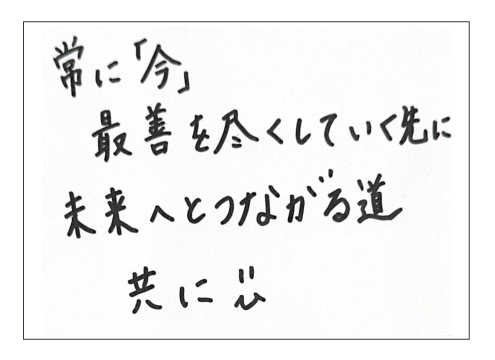 常に「今」
最善を尽くしていく先に
未来へとつながる道
共に